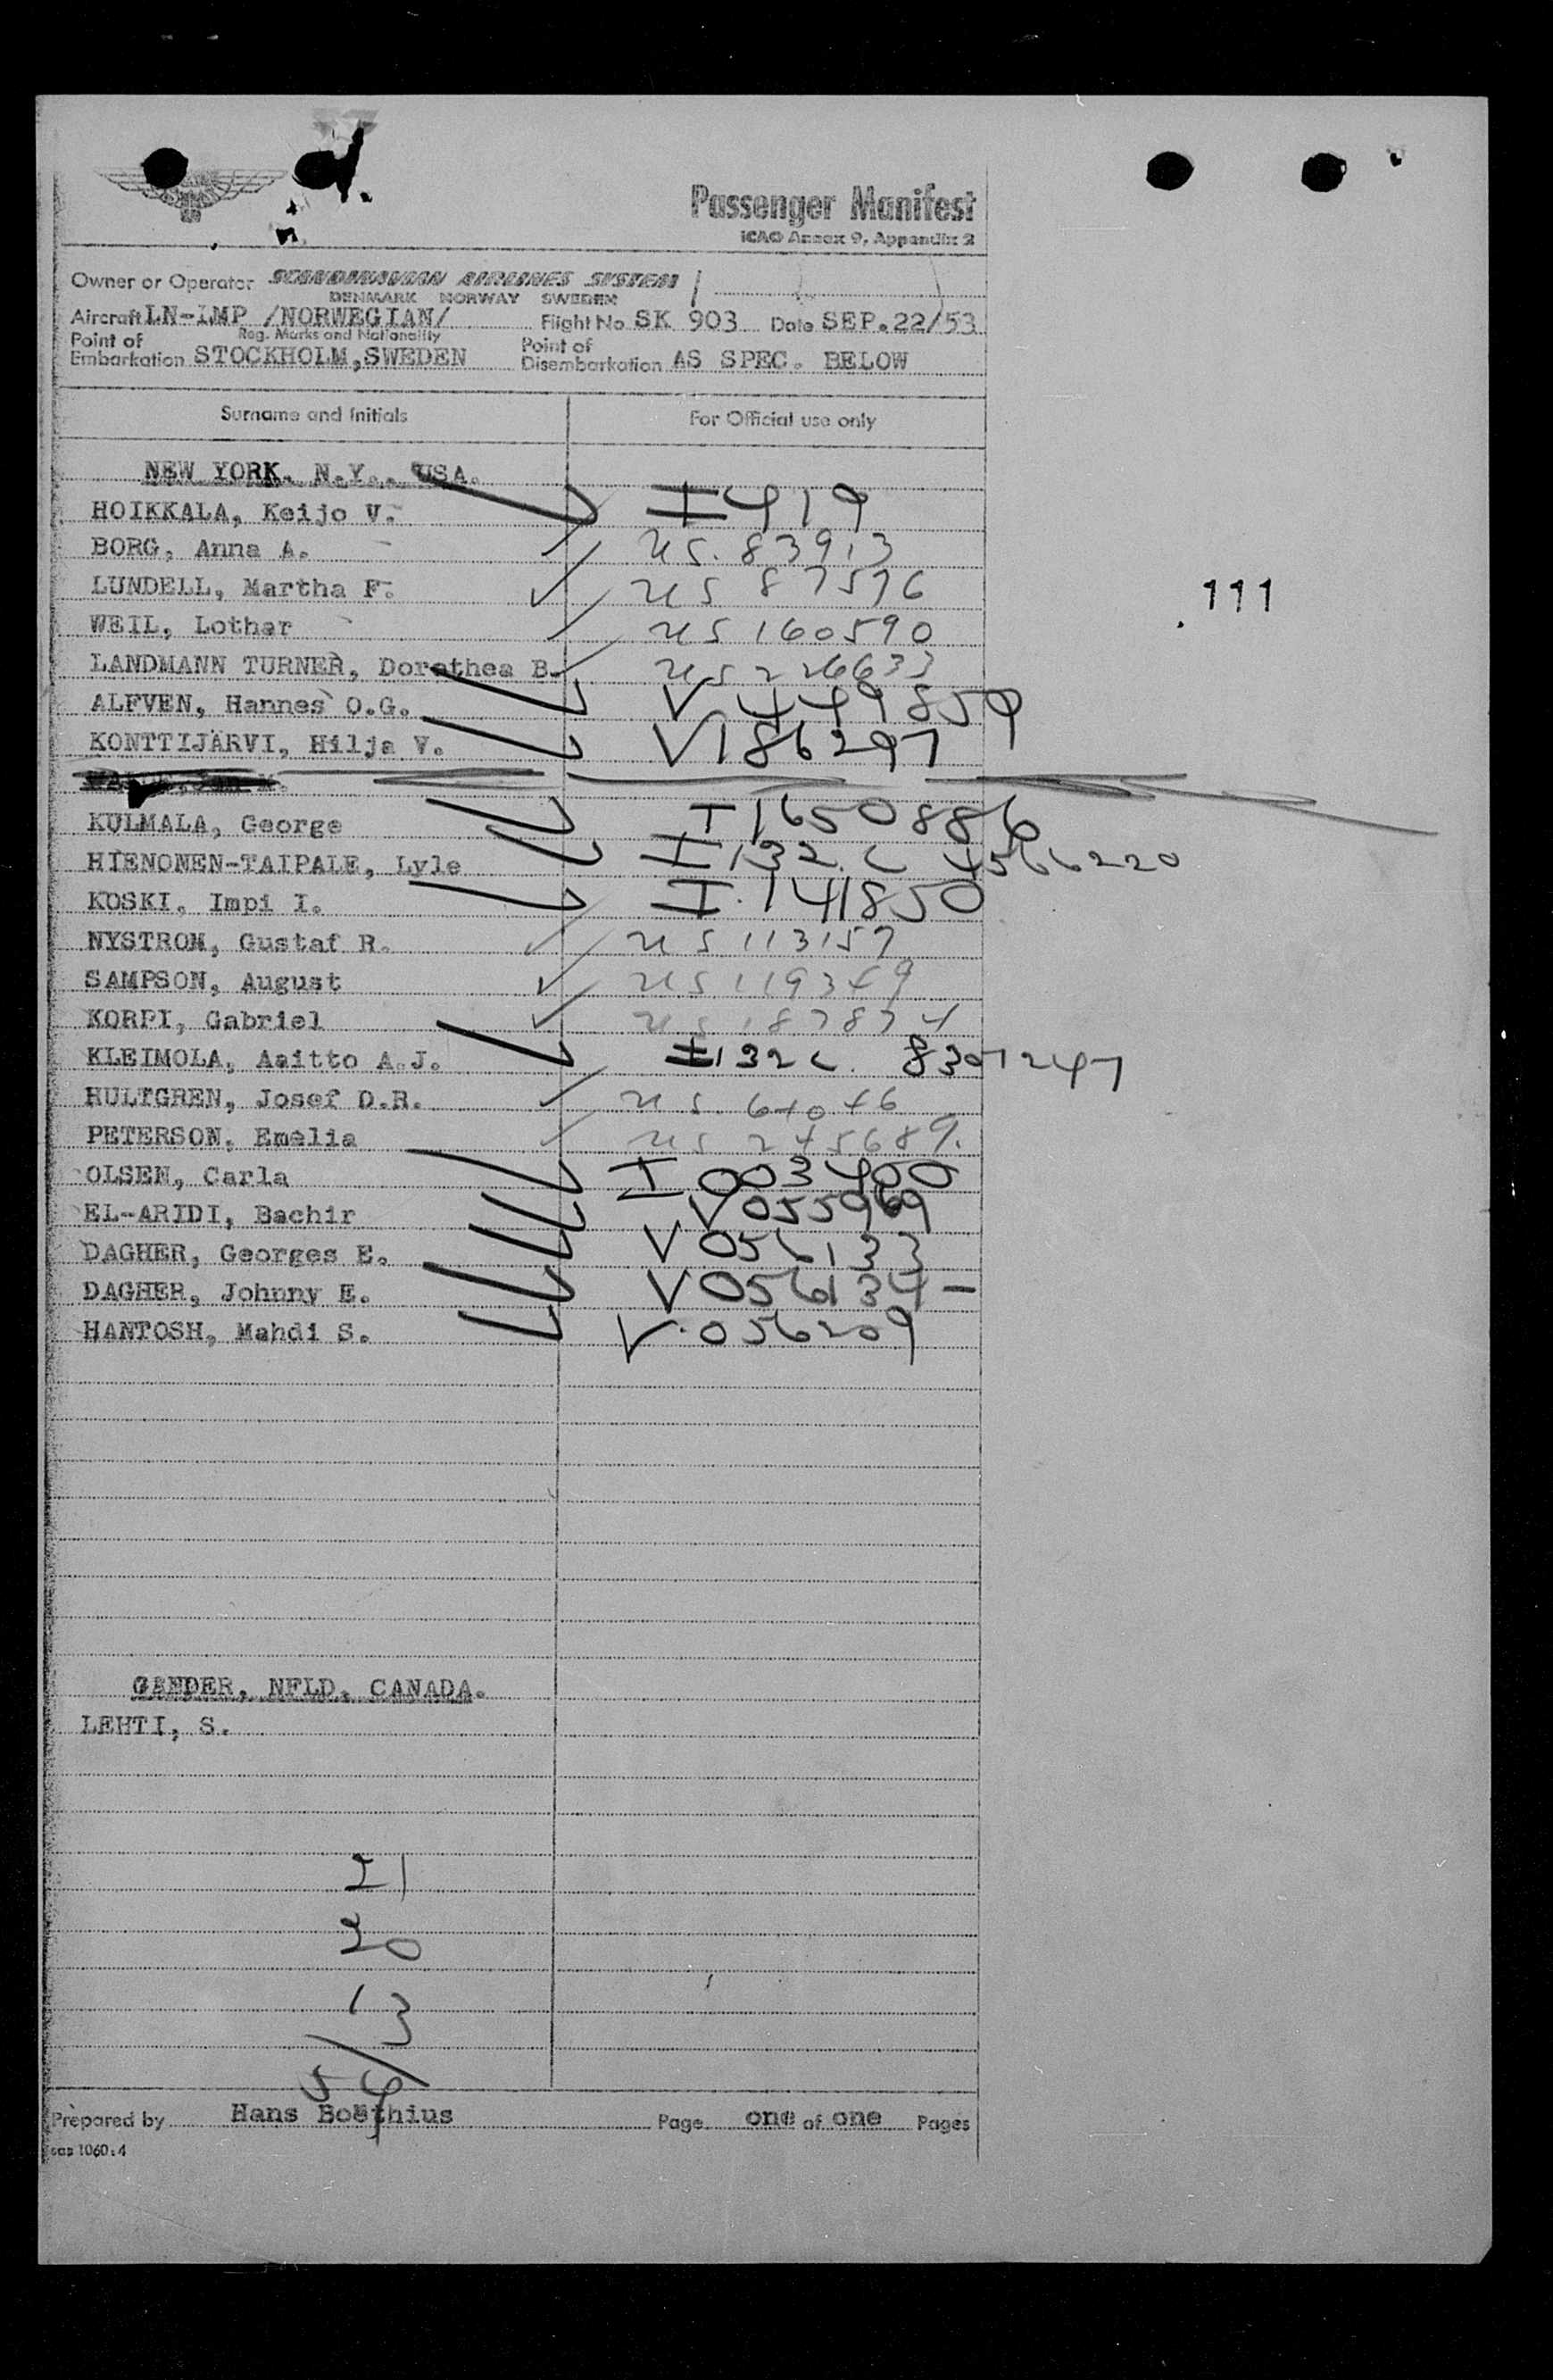 Passenger Manifest
ICAO Annex 9, Appendix 2
Owner or Operator SCANDINAVIAN AIRLINES SYSTEM
DENMARK NORWAY SWEDEN
Aircraft LN-LMP /NORWEGIAN/ Flight No SK 903 Date SEP.22/53
Reg. Marks and Nationality
Point of Embarkation STOCKHOLM,SWEDEN Point of Disembarkation AS SPEC. BELOW
Surname and Initials For Official use only
NEW YORK. N.Y.. USA.
HOIKKALA, Keijo V. I 419
BORG, Anna A. US. 83913
LUNDELL, Martha F. US 87576
111
WEIL, Lothar US 160590
LANDMANN TURNER, Dorothea B. US 226633
ALFVEN, Hannes O.G. V 449859
KONTTIJÄRVI, Hilja V. V 186297
KULMALA, George I 1650886
HIENONEN-TAIPALE, Lyle I 132 c 4566220
KOSKI, Impi I. I. 141850
NYSTROM, Gustaf R. US 113157
SAMPSON, August US 119349
KORPI, Gabriel US 187874
KLEIMOLA, Aaitto A.J. I 132 c. 8307247
HULTGREN, Josef D.R. US. 64046
PETERSON, Emelia US 245689.
OLSEN, Carla I 003400
EL-ARIDI, Bachir V 055969
DAGHER, Georges E. V 056133
DAGHER, Johnny E. V 056134-
HANTOSH, Mahdi S. V. 056209
GANDER, NFLD, CANADA.
LEHTI, S.
21
20
13
54
Prepared by Hans Boëthius Page one of one Pages
sas 1060:4